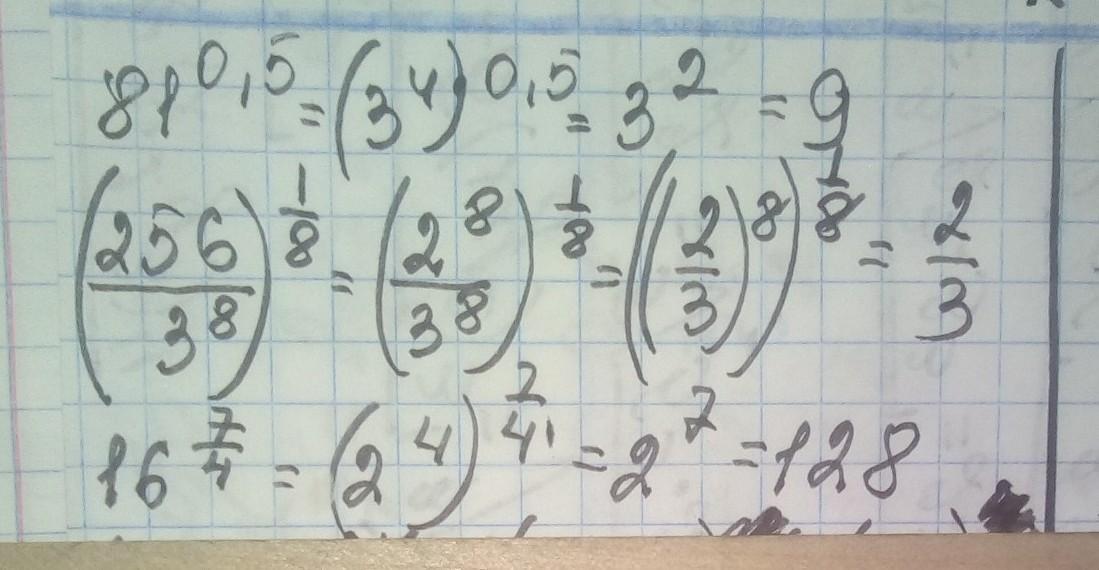 81^{0,5} = (3^4)^{0,5} = 3^2 = 9
(256/3^8)^{1/8} = (2^8/3^8)^{1/8} = ((2/3)^8)^{1/8} = 2/3
16^{7/4} = (2^4)^{7/4} = 2^7 = 128